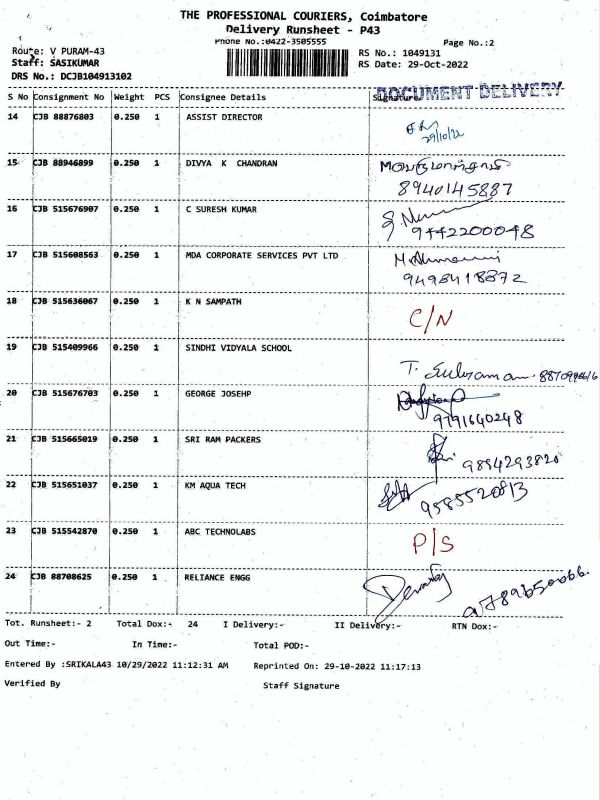 THE PROFESSIONAL COURIERS, Coimbatore
Delivery Runsheet - P43
Phone No.:0422-3505555
Page No.:2
Route: V PURAM-43 RS No.: 1049131
Staff: SASIKUMAR RS Date: 29-Oct-2022
DRS No.: DCJB104913102
DOCUMENT DELIVERY
S No Consignment No Weight PCS Consignee Details Signature
14 CJB 88876803 0.250 1 ASSIST DIRECTOR
29/10/22
15 CJB 88946899 0.250 1 DIVYA K CHANDRAN
8940145887
16 CJB 515676907 0.250 1 C SURESH KUMAR
9442200048
17 CJB 515608563 0.250 1 MDA CORPORATE SERVICES PVT LTD
9498418872
18 CJB 515636067 0.250 1 K N SAMPATH
C/N
19 CJB 515409966 0.250 1 SINDHI VIDYALA SCHOOL
T.
20 CJB 515676703 0.250 1 GEORGE JOSEHP
9791640248
21 CJB 515665019 0.250 1 SRI RAM PACKERS
9894293820
22 CJB 515651037 0.250 1 KM AQUA TECH
9585520813
23 CJB 515542870 0.250 1 ABC TECHNOLABS
P/S
24 CJB 88708625 0.250 1 RELIANCE ENGG
9789650066.
Tot. Runsheet:- 2 Total Dox:- 24 I Delivery:- II Delivery:- RTN Dox:-
Out Time:- In Time:- Total POD:-
Entered By :SRIKALA43 10/29/2022 11:12:31 AM Reprinted On: 29-10-2022 11:17:13
Verified By Staff Signature